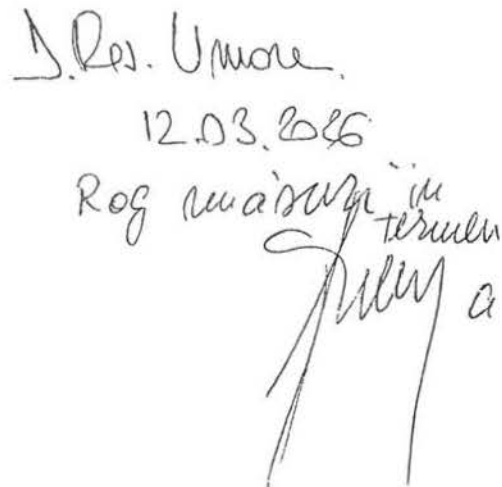 D. Res. Umane
12.03.2026
Rog măsuri în
termen
a